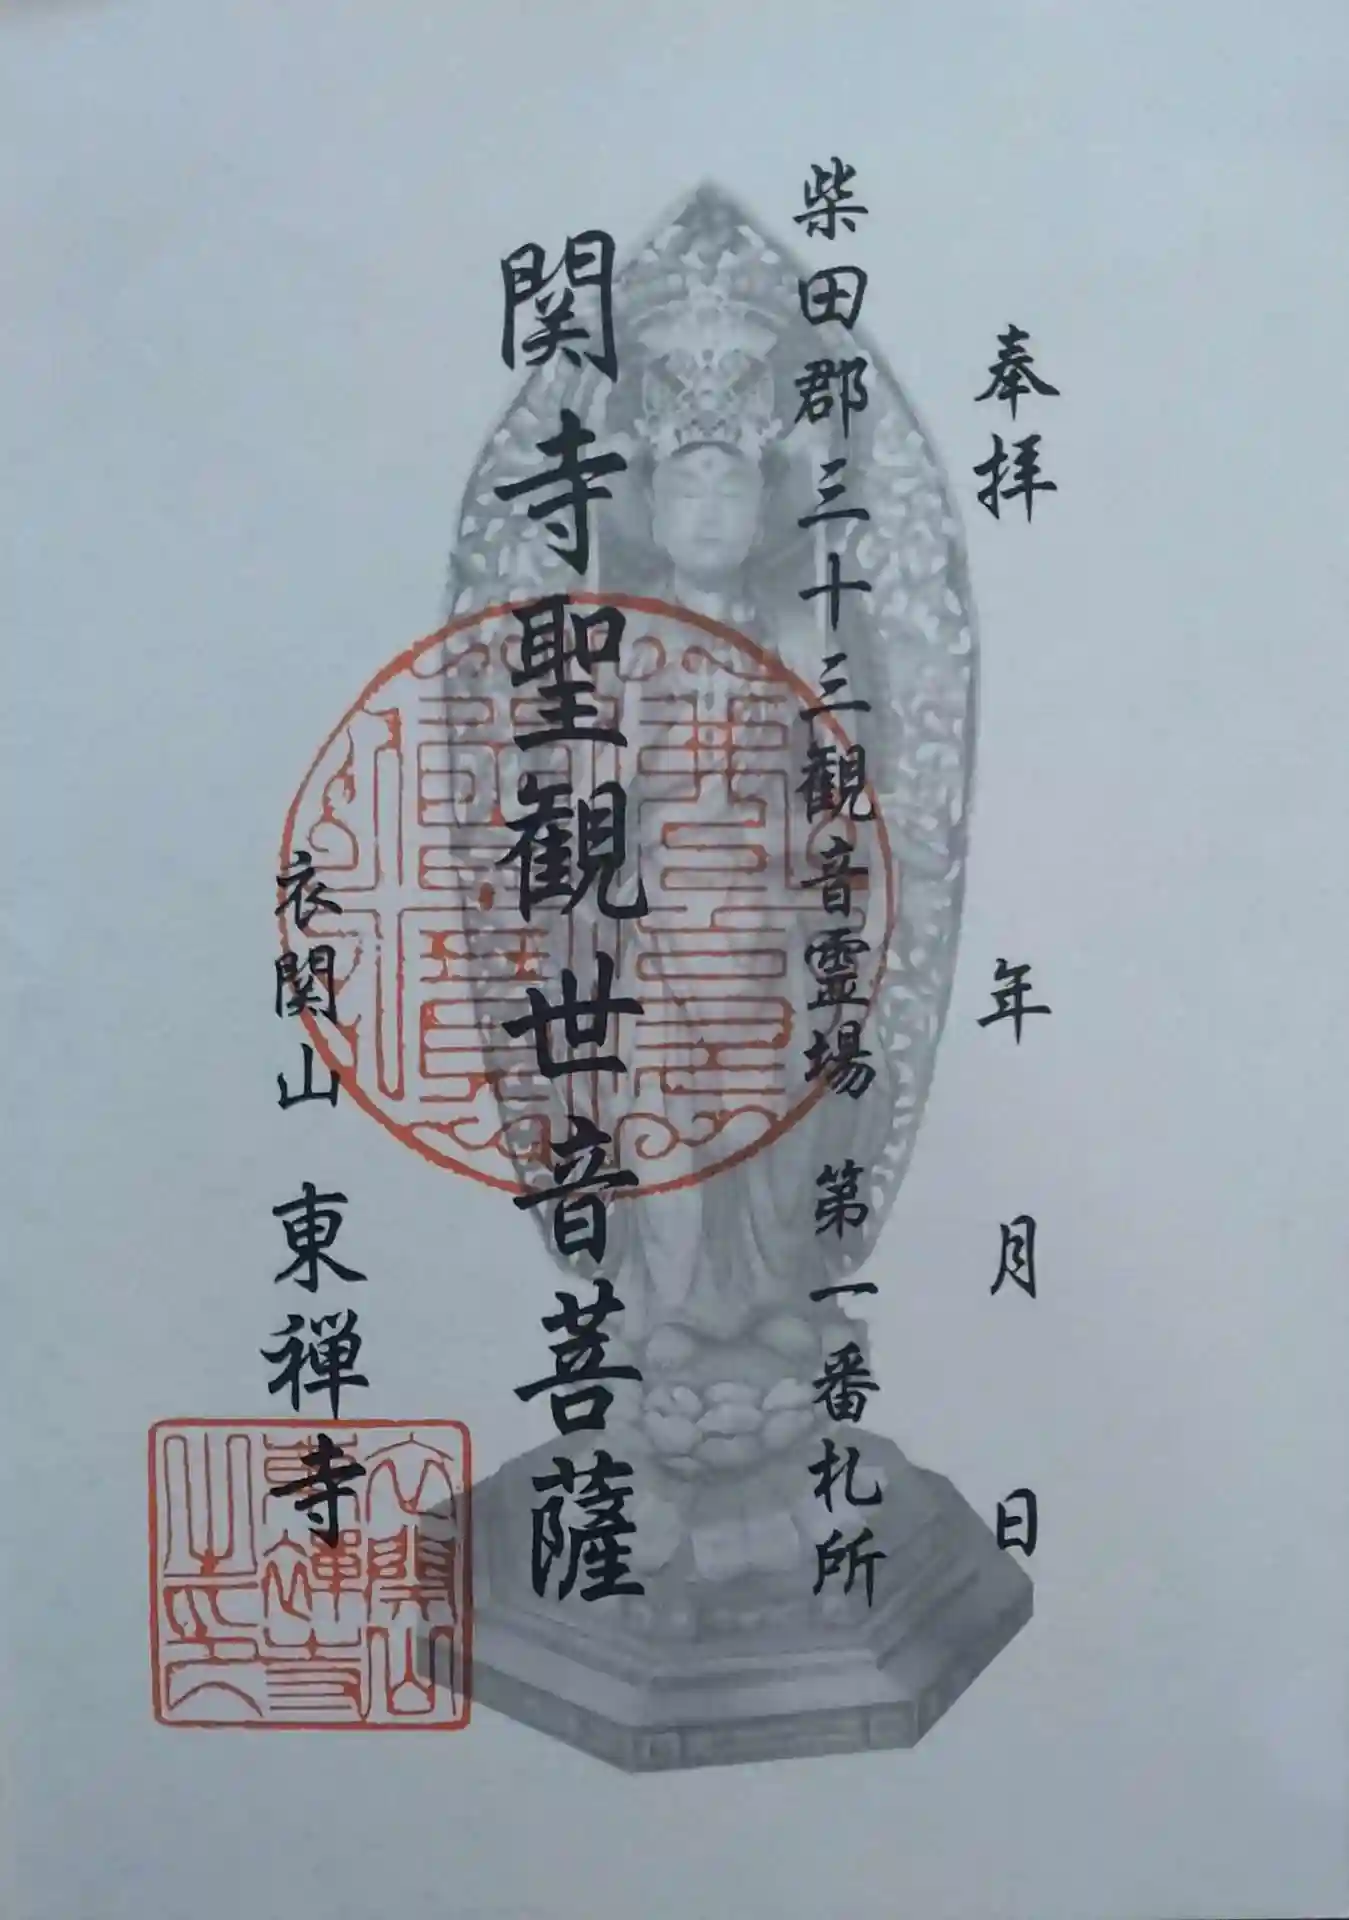 奉拝　年　月　日
柴田郡三十三観音霊場　第一番札所
関寺聖観世音菩薩
衣関山　東禅寺
衣関山
東禅寺
之印